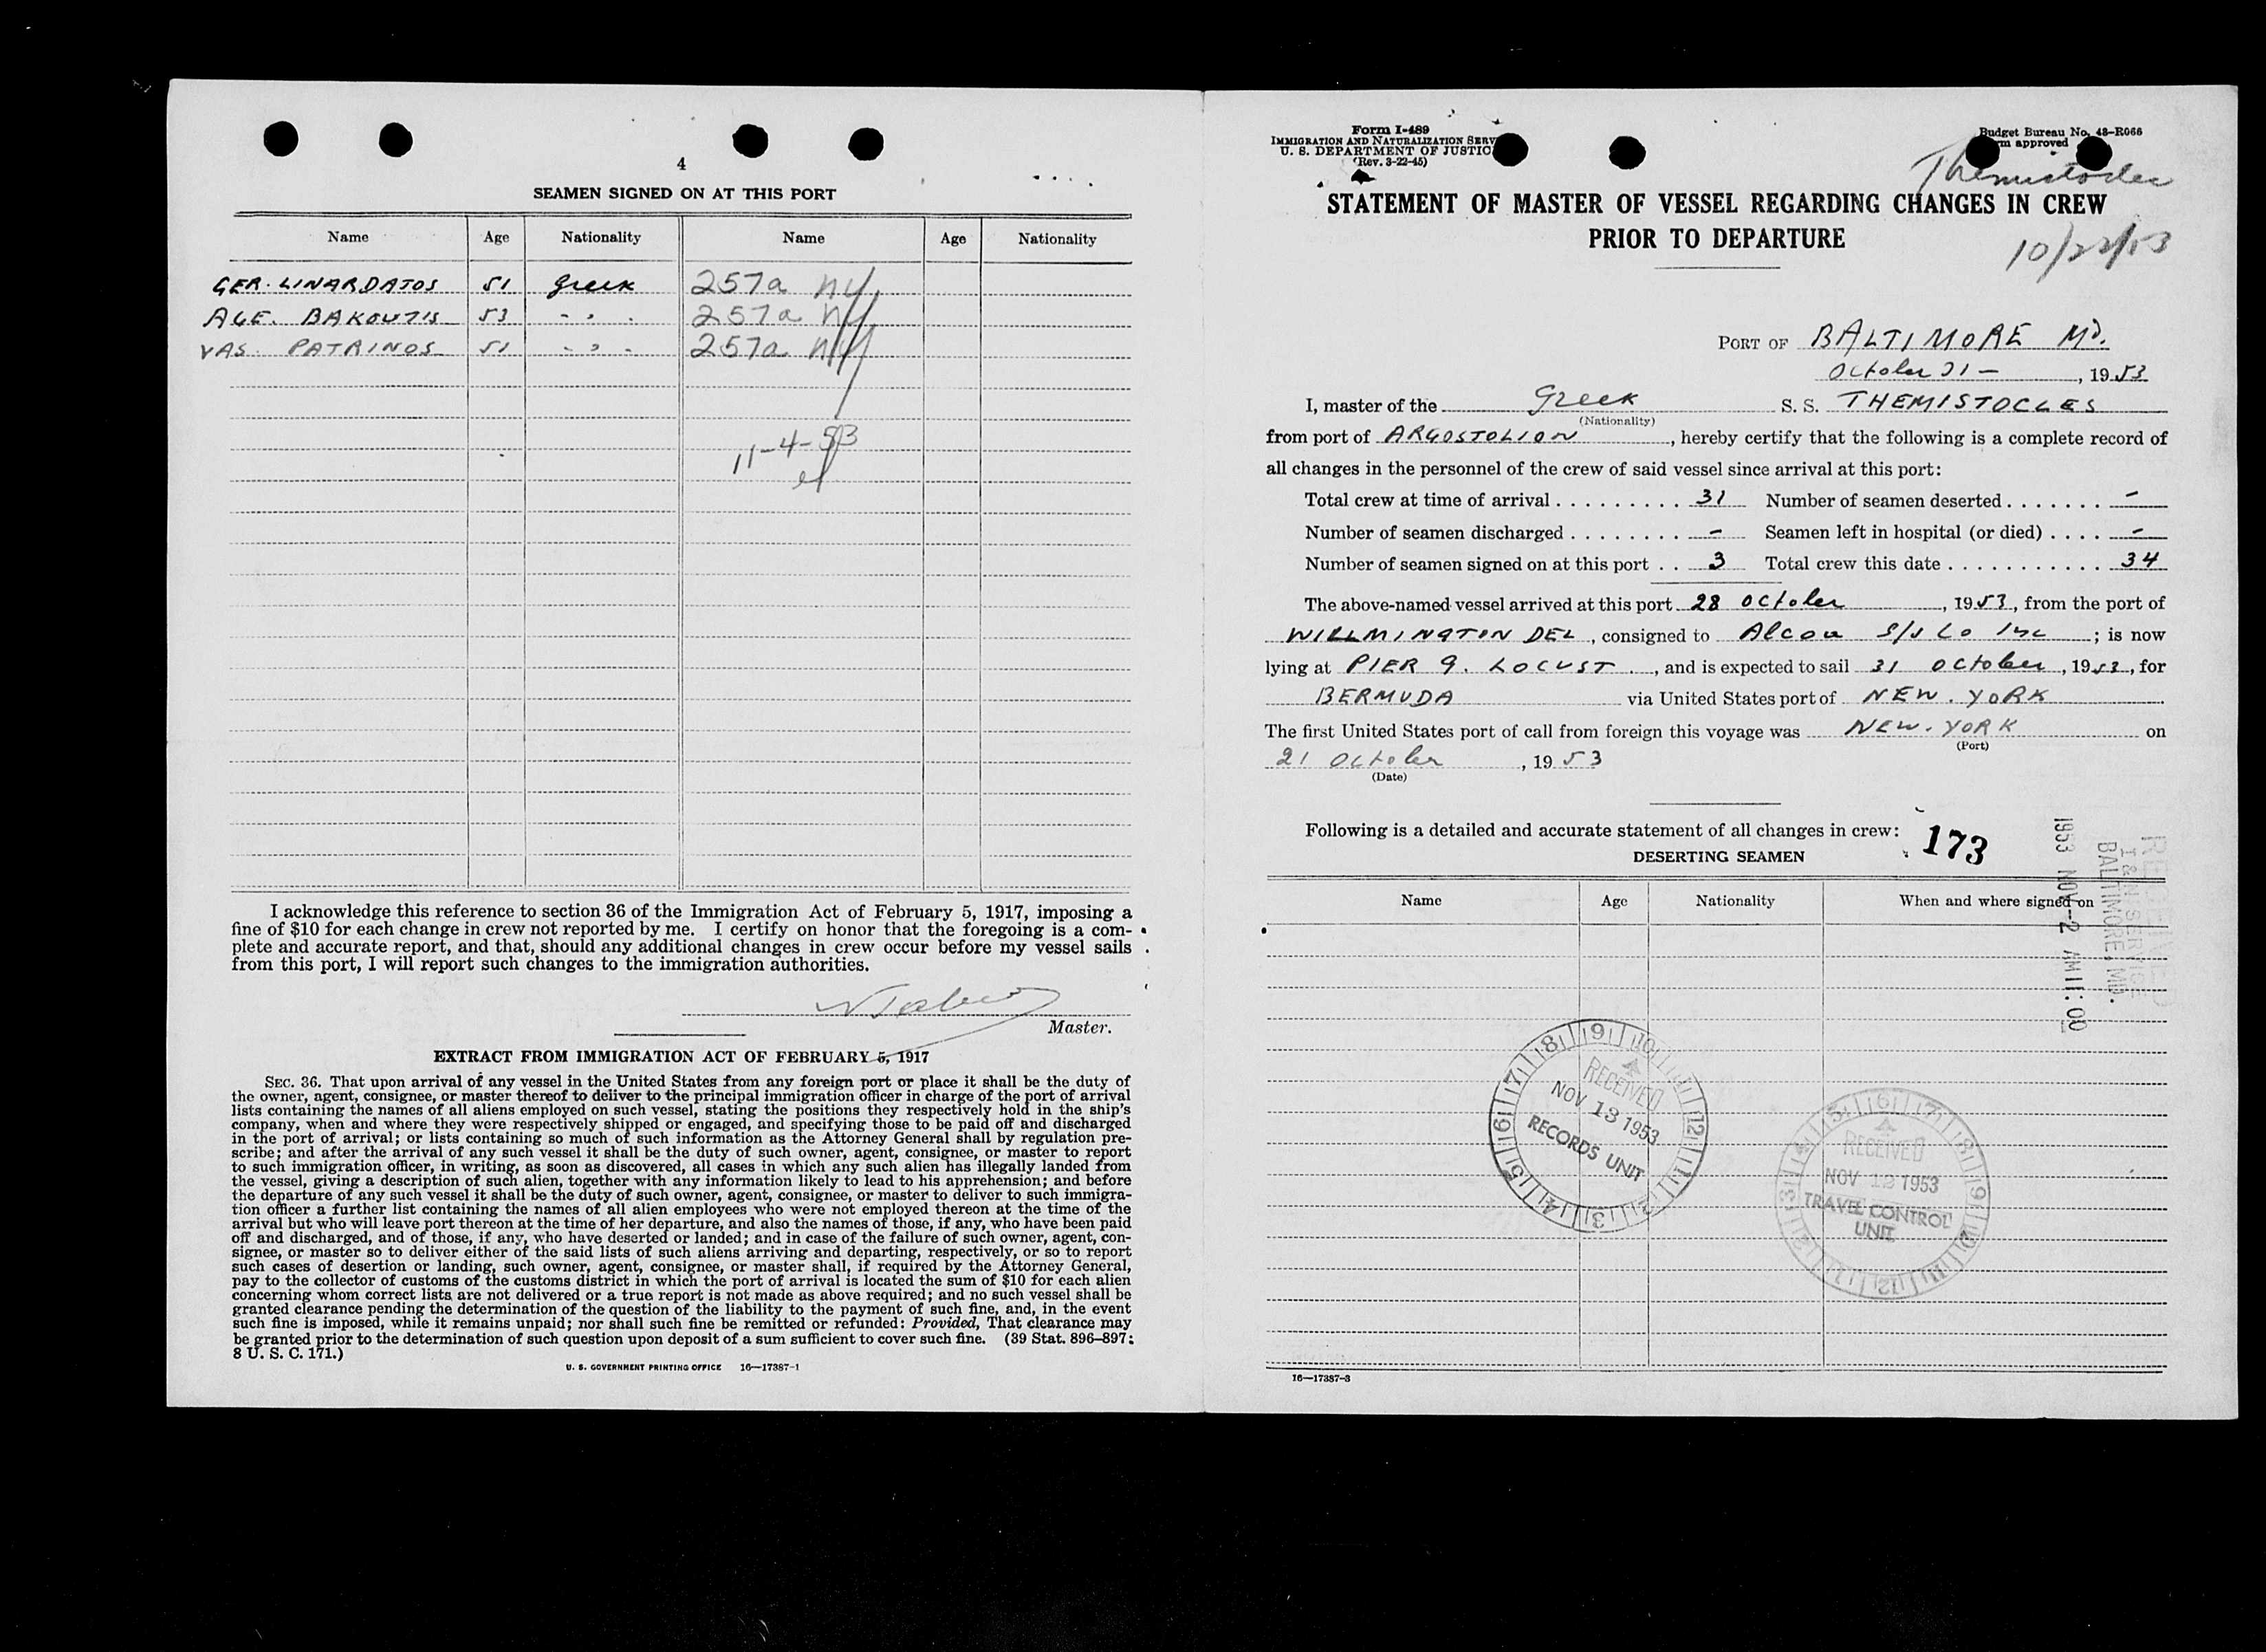 4
SEAMEN SIGNED ON AT THIS PORT
Name Age Nationality Name Age Nationality
GER. LINARDATOS 51 Greek 257a NY
AGE. BAKOUTIS 53 - " - 257a NY
VAS. PATRINOS 51 - " - 257a NY
11-4-53
I acknowledge this reference to section 36 of the Immigration Act of February 5, 1917, imposing a
fine of $10 for each change in crew not reported by me. I certify on honor that the foregoing is a com-
plete and accurate report, and that, should any additional changes in crew occur before my vessel sails
from this port, I will report such changes to the immigration authorities.
Master.
EXTRACT FROM IMMIGRATION ACT OF FEBRUARY 5, 1917
SEC. 36. That upon arrival of any vessel in the United States from any foreign port or place it shall be the duty of
the owner, agent, consignee, or master thereof to deliver to the principal immigration officer in charge of the port of arrival
lists containing the names of all aliens employed on such vessel, stating the positions they respectively hold in the ship's
company, when and where they were respectively shipped or engaged, and specifying those to be paid off and discharged
in the port of arrival; or lists containing so much of such information as the Attorney General shall by regulation pre-
scribe; and after the arrival of any such vessel it shall be the duty of such owner, agent, consignee, or master to report
to such immigration officer, in writing, as soon as discovered, all cases in which any such alien has illegally landed from
the vessel, giving a description of such alien, together with any information likely to lead to his apprehension; and before
the departure of any such vessel it shall be the duty of such owner, agent, consignee, or master to deliver to such immigra-
tion officer a further list containing the names of all alien employees who were not employed thereon at the time of the
arrival but who will leave port thereon at the time of her departure, and also the names of those, if any, who have been paid
off and discharged, and of those, if any, who have deserted or landed; and in case of the failure of such owner, agent, con-
signee, or master so to deliver either of the said lists of such aliens arriving and departing, respectively, or so to report
such cases of desertion or landing, such owner, agent, consignee, or master shall, if required by the Attorney General,
pay to the collector of customs of the customs district in which the port of arrival is located the sum of $10 for each alien
concerning whom correct lists are not delivered or a true report is not made as above required; and no such vessel shall be
granted clearance pending the determination of the question of the liability to the payment of such fine, and, in the event
such fine is imposed, while it remains unpaid; nor shall such fine be remitted or refunded: Provided, That clearance may
be granted prior to the determination of such question upon deposit of a sum sufficient to cover such fine. (39 Stat. 896-897;
8 U. S. C. 171.)
U. S. GOVERNMENT PRINTING OFFICE 16—17387-1
Form I-489
IMMIGRATION AND NATURALIZATION SERV
U. S. DEPARTMENT OF JUSTIC
(Rev. 3-22-45)
Budget Bureau No. 43-R066
m approved
Themistocles
STATEMENT OF MASTER OF VESSEL REGARDING CHANGES IN CREW
PRIOR TO DEPARTURE
PORT OF BALTIMORE Md.
October 31 - , 1953
I, master of the Greek S. S. THEMISTOCLES
(Nationality)
from port of ARGOSTOLION, hereby certify that the following is a complete record of
all changes in the personnel of the crew of said vessel since arrival at this port:
Total crew at time of arrival . . . . . . . . . . 31 Number of seamen deserted . . . . . . . -
Number of seamen discharged . . . . . . . . - Seamen left in hospital (or died) . . . . -
Number of seamen signed on at this port . . 3 Total crew this date . . . . . . . . . . . . 34
The above-named vessel arrived at this port 28 October, 1953, from the port of
WILLMINGTON DEL, consigned to Alcoa S/S Co Inc; is now
lying at PIER 9. LOCUST, and is expected to sail 31 October, 1953, for
BERMUDA via United States port of NEW. YORK
The first United States port of call from foreign this voyage was NEW. YORK on
(Port)
21 October, 1953
(Date)
Following is a detailed and accurate statement of all changes in crew:
173
DESERTING SEAMEN
Name Age Nationality When and where signed on
RECEIVED
I & N SERVICE
BALTIMORE, MD.
1953 NOV -2 AM 11:00
RECEIVED
NOV 13 1953
RECORDS UNIT
RECEIVED
NOV 1953
TRAVEL CONTROL
UNIT
16—17387-3